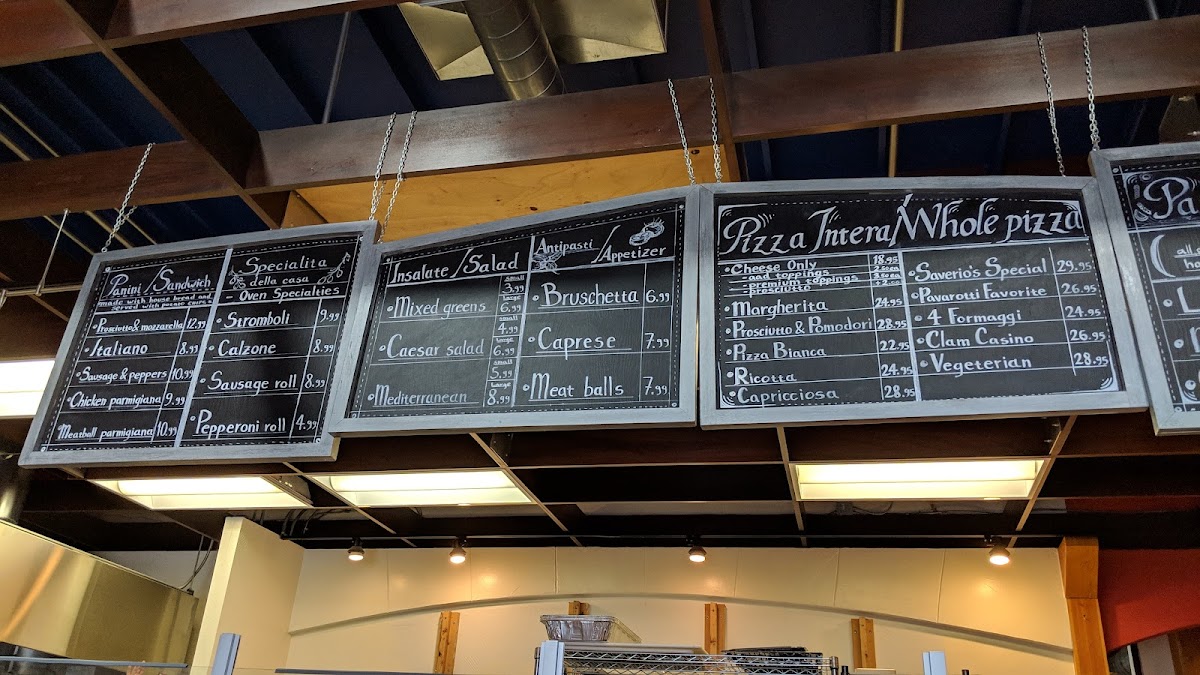 Panini/Sandwich
made with house bread and
served with potato chips
Prosciutto & mozzarella 12.99
Italiano 8.99
Sausage & peppers 10.99
Chicken parmigiana 9.99
Meatball parmigiana 10.99
Specialita
della casa
- Oven Specialties
Stromboli 9.99
Calzone 8.99
Sausage roll 8.99
Pepperoni roll 4.99
Insalate/Salad
Mixed greens small 3.99 large 6.99
Caesar salad small 4.99 large 6.99
Mediterranean small 5.99 large 8.99
Antipasti/Appetizer
Bruschetta 6.99
Caprese 7.99
Meat balls 7.99
Pizza Intera/Whole pizza
Cheese Only 18.95
- add toppings
- premium toppings
prosciutto
Margherita 24.95
Prosciutto & Pomodori 28.95
Pizza Bianca 22.95
Ricotta 24.95
Capricciosa 28.95
Saverio's Special 29.95
Pavarotti Favorite 26.95
4 Formaggi 24.95
Clam Casino 26.95
Vegeterian 28.95
Pa
all